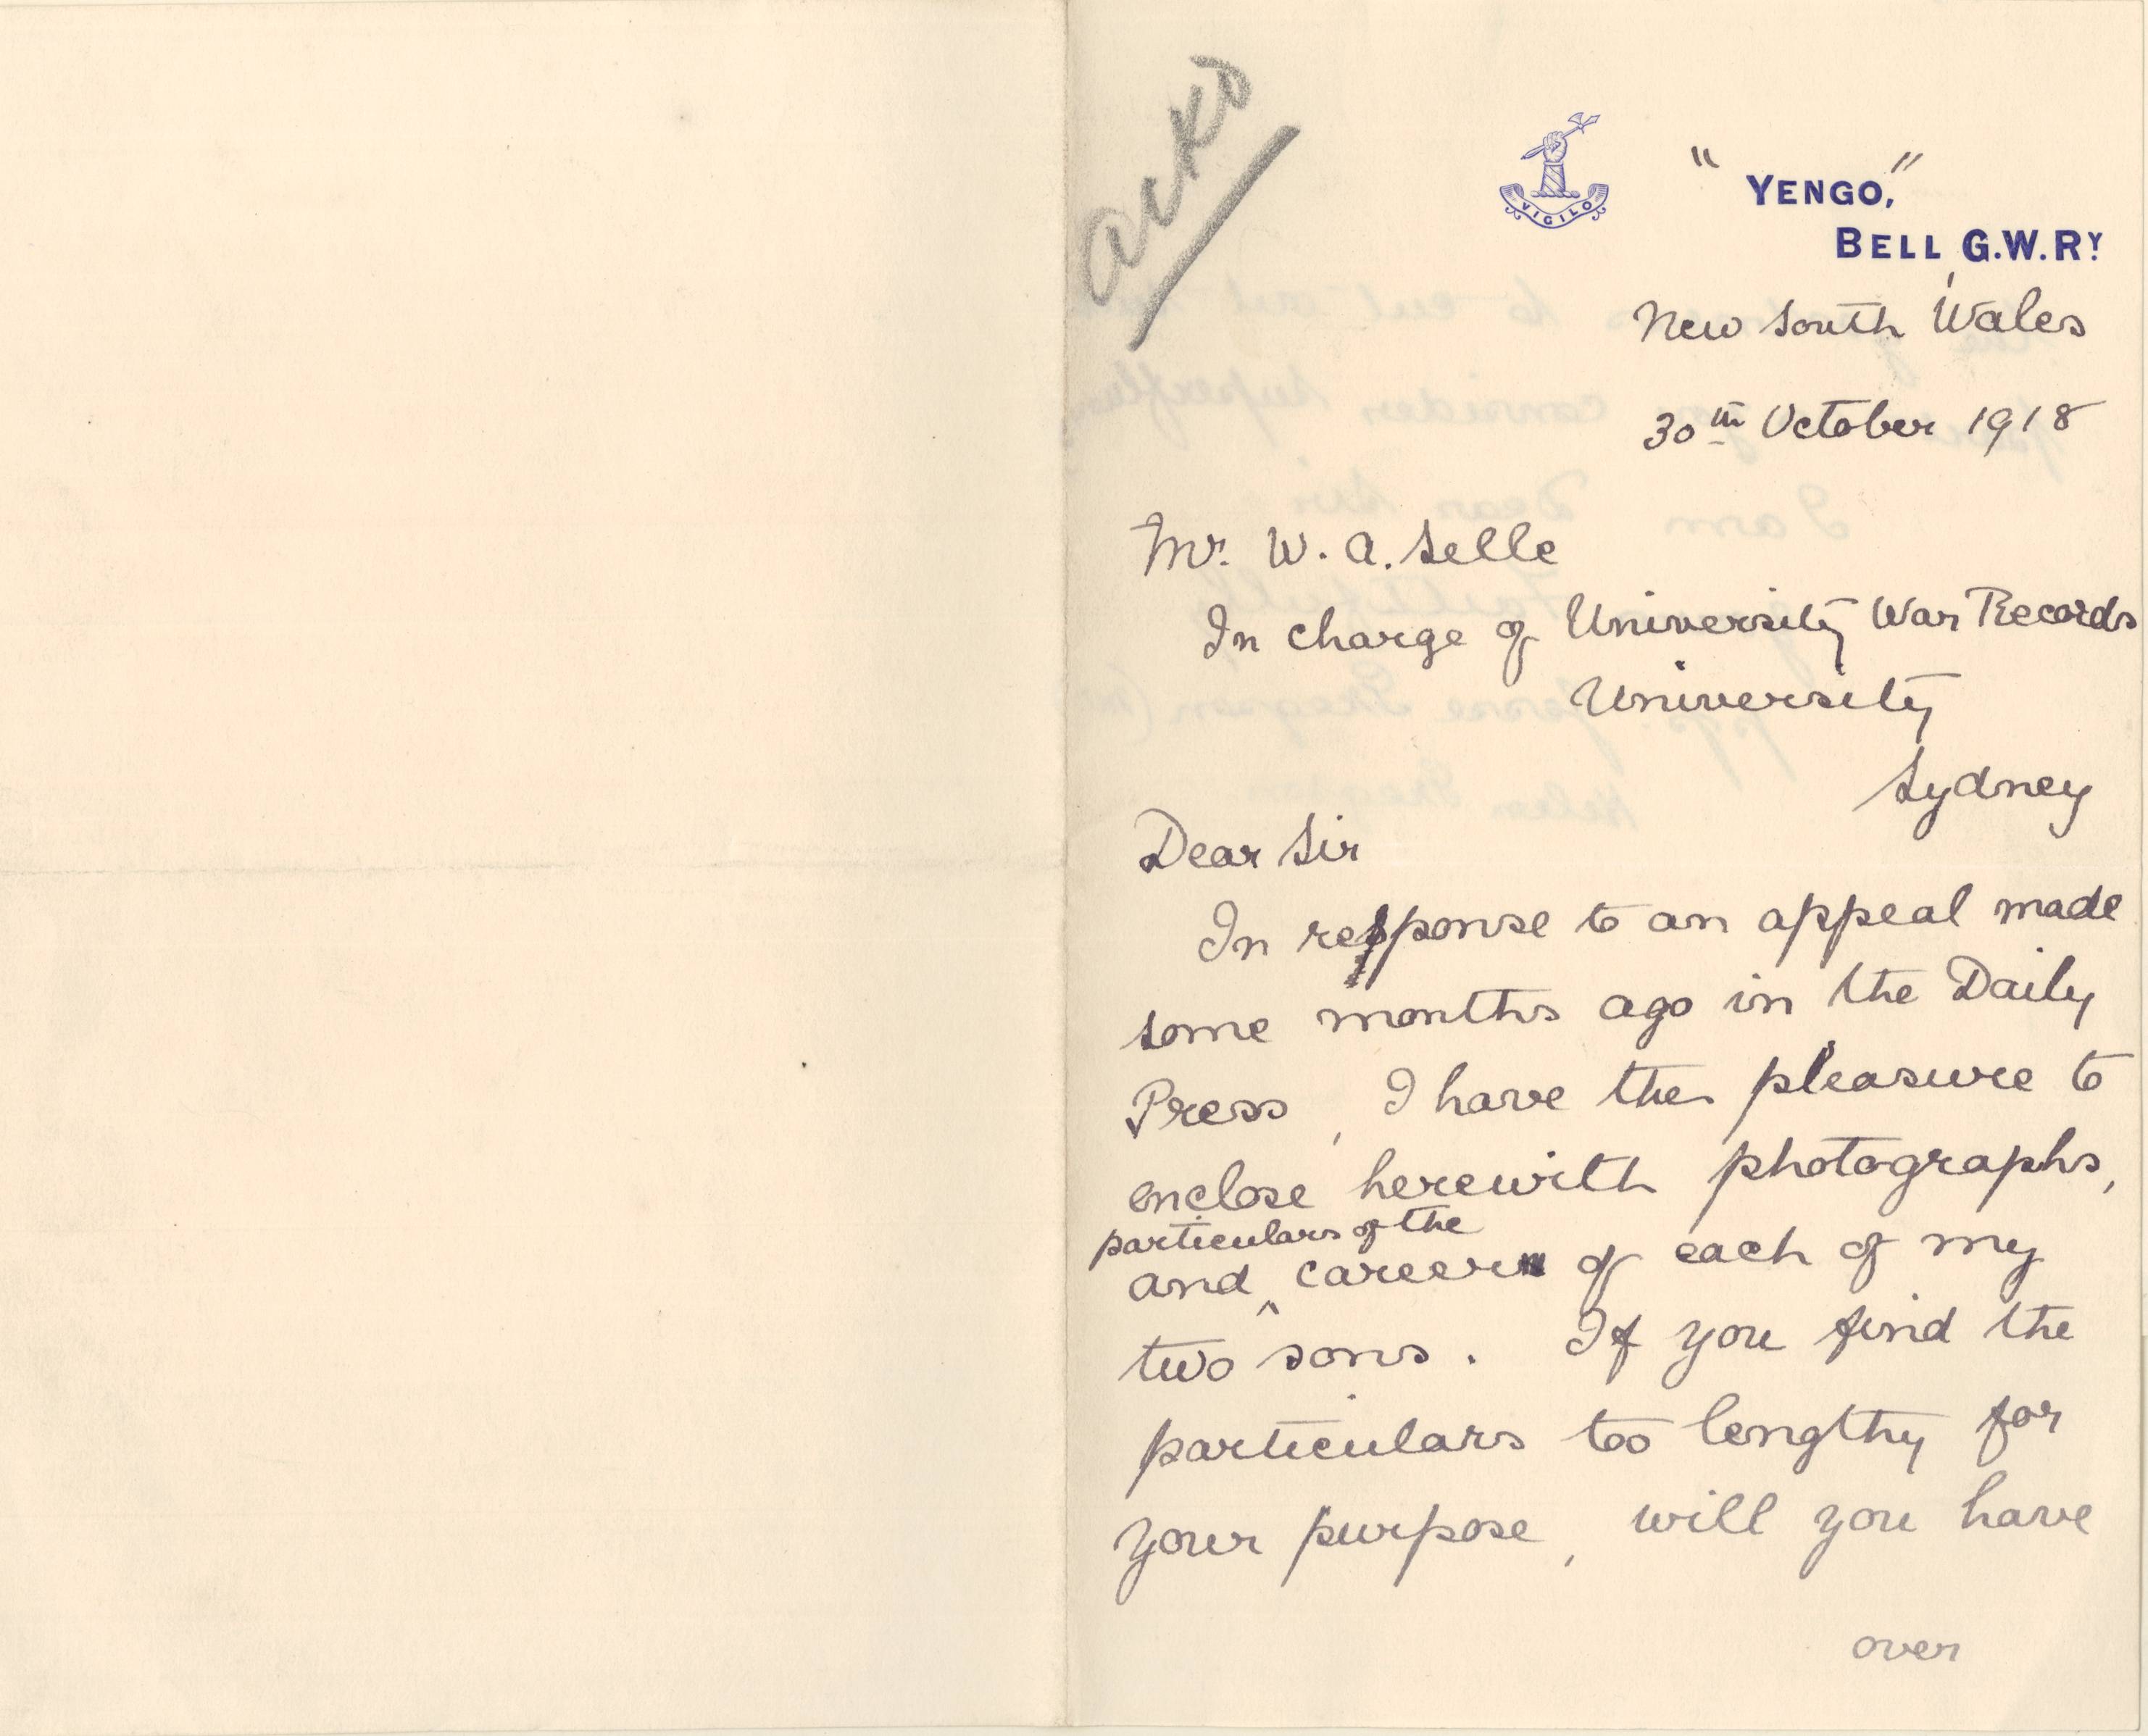 ackd
VIGILO
" YENGO, "
BELL, G.W.RY
New South Wales
30th October 1918
Mr. W. A. Selle
In charge of University War Records
University
Sydney
Dear Sir
In response to an appeal made
some months ago in the Daily
Press, I have the pleasure to
enclose herewith photographs,
particulars of the
and ^ career of each of my
two sons. If you find the
particulars too lengthy for
your purpose, will you have
over